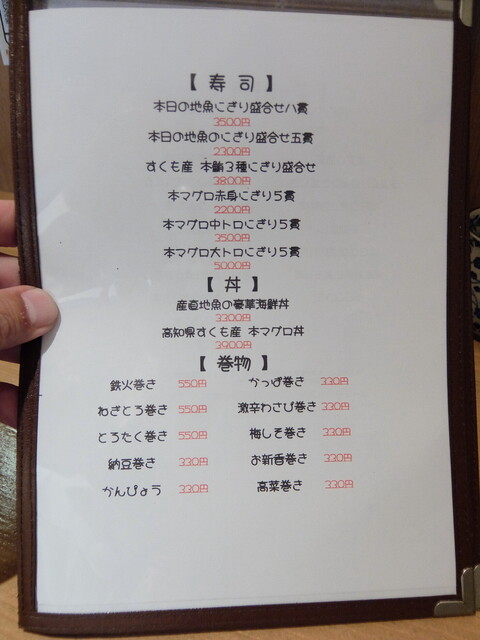 【 寿 司 】
本日の地魚にぎり盛合せ八貫
3500円
本日の地魚のにぎり盛合せ五貫
2300円
すくも産 本鮪3種にぎり盛合せ
3800円
本マグロ赤身にぎり5貫
2200円
本マグロ中トロにぎり5貫
3500円
本マグロ大トロにぎり5貫
5000円
【 丼 】
産直地魚の豪華海鮮丼
3300円
高知県すくも産 本マグロ丼
3900円
【 巻物 】
鉄火巻き 550円 かっぱ巻き 330円
ねぎとろ巻き 550円 激辛わさび巻き 330円
とろたく巻き 550円 梅しそ巻き 330円
納豆巻き 330円 お新香巻き 330円
かんぴょう 330円 高菜巻き 330円